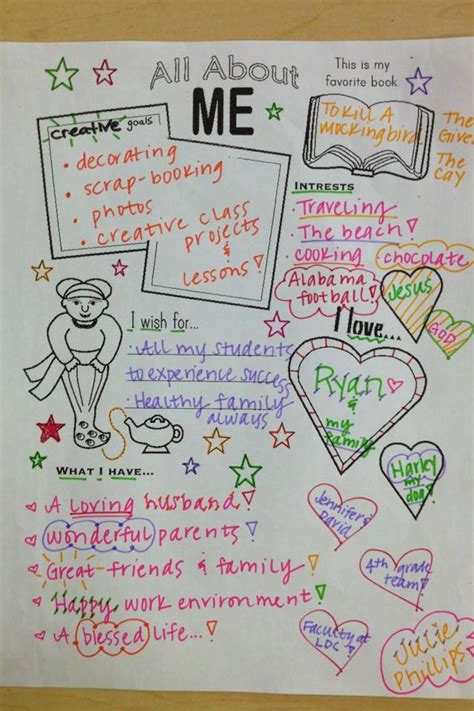 All About
ME
This is my
favorite book.
To Kill A
Mockingbird
The
Giver
The
Cay
creative goals
• decorating
• scrap-booking
• photos
• creative class
projects
&
lessons!
INTRESTS
• Traveling
• The beach!
• cooking
chocolate
Alabama
football!
Jesus
GOD
I wish for...
• All my students
to experience success
• Healthy family
always
I love...
Ryan
&
my
family
Harley
my
dog!
WHAT I HAVE...
A loving husband!
wonderful parents!
Great friends & family!
Happy work environment!
A blessed life...!
Jennifer &
David
4th grade
team!
Faculty at
LDC!
Julie
Phillips